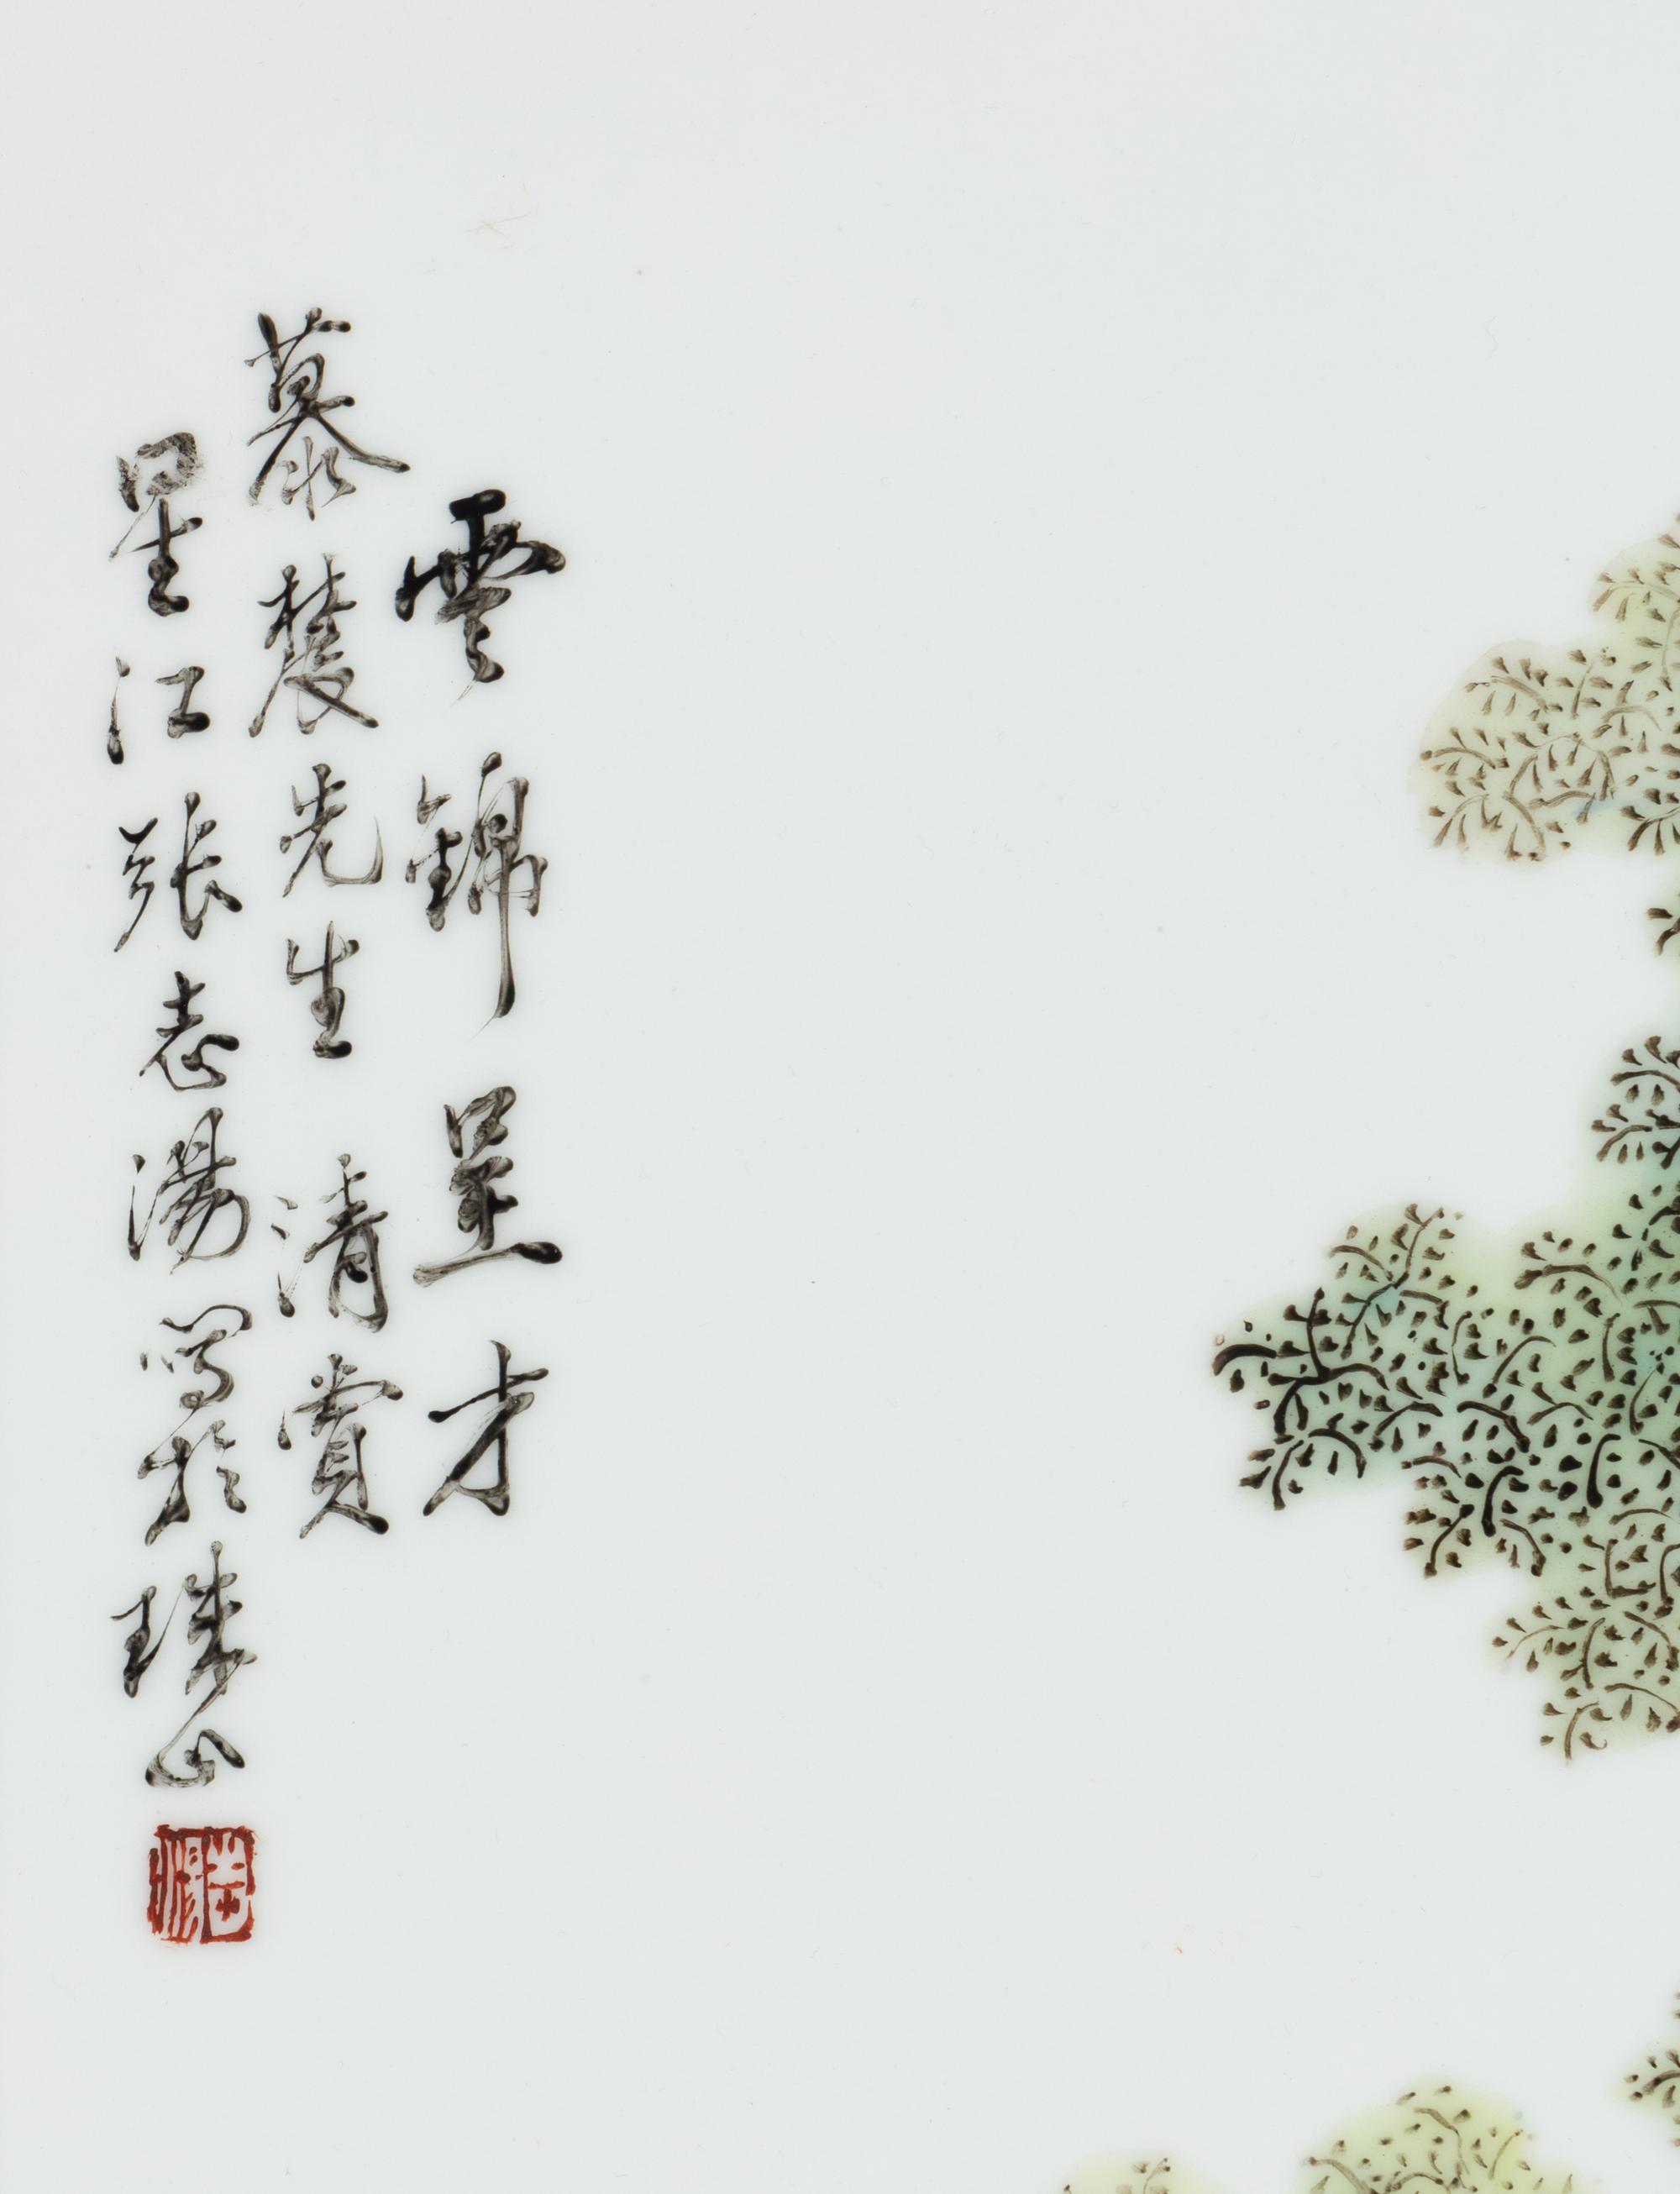 雲錦呈才
慕農先生清賞
星江張志湯寫於珠山
志湯